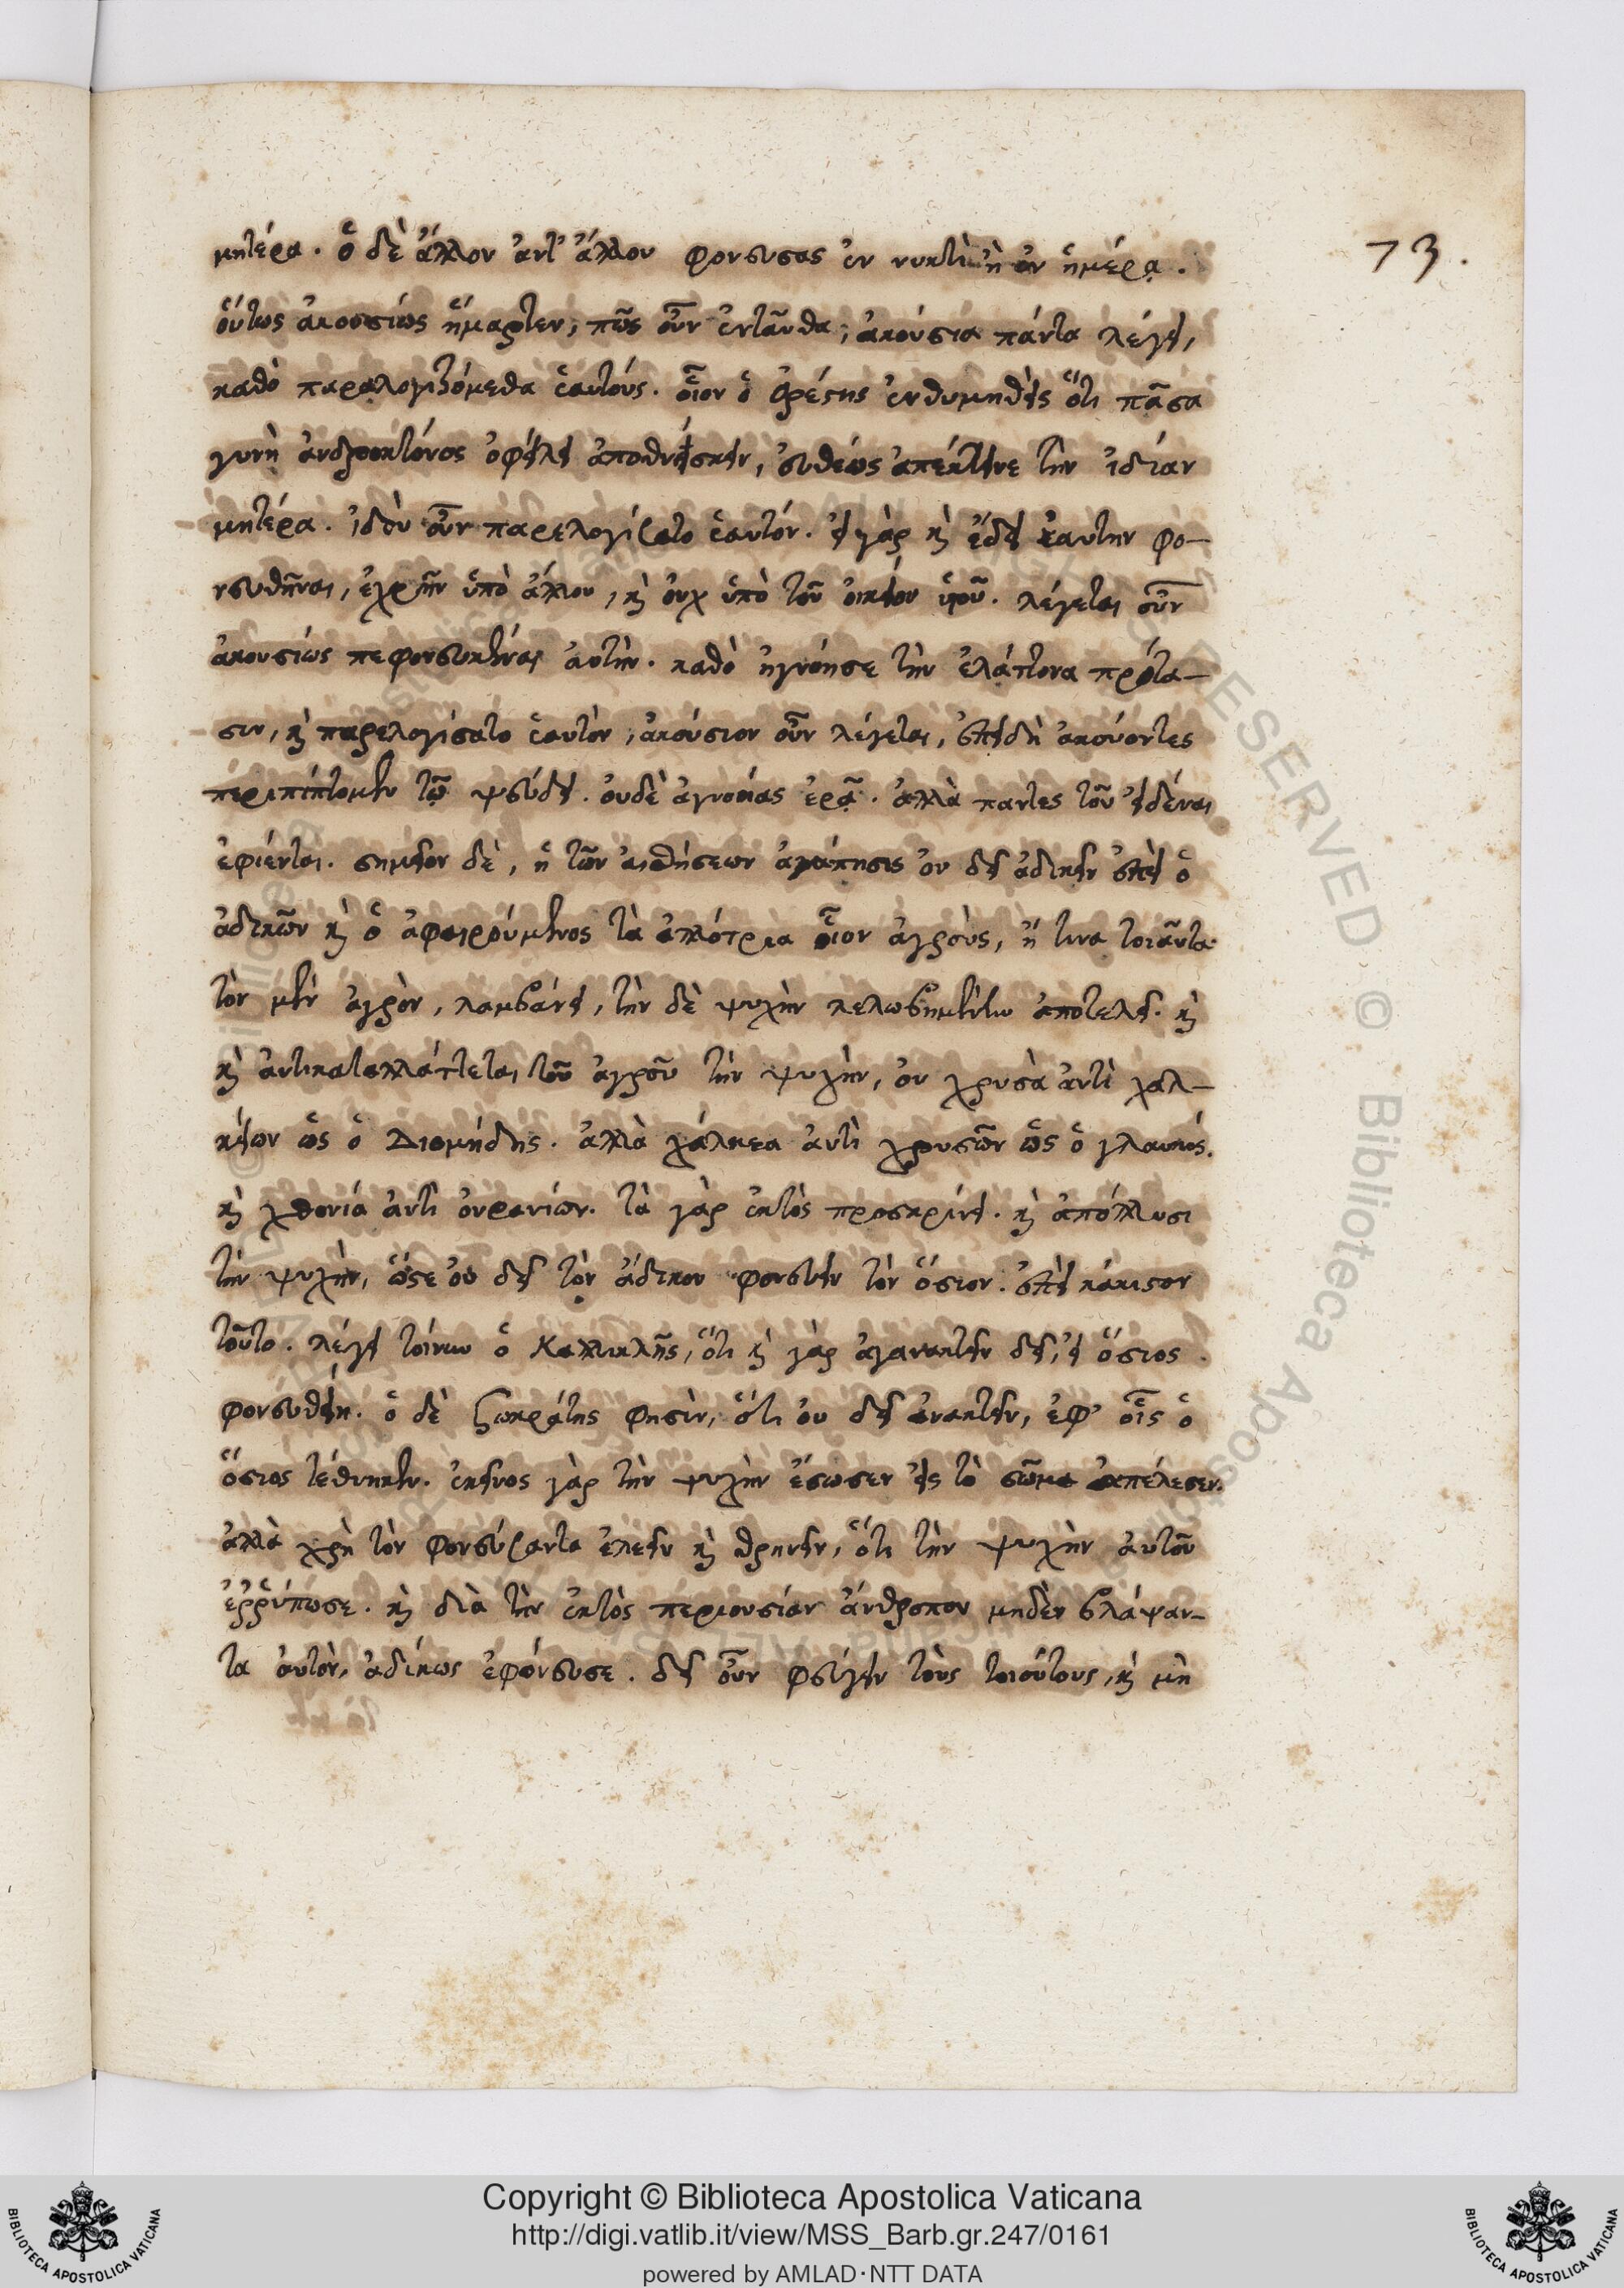 73.
μητέρα. ὁ δὲ ἄλλον ἀντ' ἄλλου φονευσας ἐν νυκτὶ ἢ ἐν ἡμέρᾳ.
οὕτως ἀκουσίως ἥμαρτεν, πῶς οὖν ἐνταῦθα, ἀκούσια πάντα λέγει,
καθὸ παραλογιζόμεθα ἑαυτούς. οἷον ὁ Ὀρέστης ἐνθυμηθεὶς ὅτι πᾶσα
γυνὴ ἀνδροκτόνος ὀφείλει ἀποθνήσκειν, εὐθέως ἀπέκτεινε τὴν ἰδίαν
μητέρα. ἰδοὺ οὖν παρελογίσατο ἑαυτόν. εἰ γὰρ καὶ ἔδει ἑαυτην φο-
νευθῆναι, ἐχρῆν ὑπὸ ἄλλου, καὶ οὐχ ὑπὸ τοῦ οἰκείου υἱοῦ. λέγεται οὖν
ἀκουσίως πεφονευκέναι αὐτὴν. καθὸ ἠγνόησε τὴν ἐλάττονα πρότα-
σιν, καὶ παρελογίσατο ἑαυτὸν, ἀκούσιον οὖν λέγεται, ἐπειδὴ ἀκούοντες
περιπίπτομεν τῷ ψεύδει. οὐδὲ ἀγνοίας ἐρᾷ. ἀλλὰ παντες τοῦ εἰδέναι
ἐφιένται. σημεῖον δὲ, ἡ τῶν αἰσθήσεων ἀγάπησις οὐ δεῖ ἀδικεῖν ἐπεὶ ὁ
ἀδικῶν καὶ ὁ ἀφαιρούμενος τὰ ἀλλότρια οἷον ἀγροὺς, ἤ τινα τοιαῦτα
τὸν μὲν ἀγρὸν, λαμβάνει, τὴν δὲ ψυχὴν λελωβημένην ἀποτελεῖ. καὶ
καὶ ἀντικαταλλάττεται τοῦ ἀγροῦ τὴν ψυχὴν, οὐ χρυσὰ ἀντὶ χαλ-
κείων ὡς ὁ Διομήδης. ἀλλὰ χάλκεα ἀντὶ χρυσῶν ὡς ὁ γλαυκός.
καὶ χθονία ἀντὶ οὐρανίων. τὰ γὰρ ἐκτὸς προσκρίνει. καὶ ἀπόλλυσι
τὴν ψυχὴν, ὥστε οὐ δεῖ τὸν ἄδικον φονεύειν τὸν ὅσιον. ἐπεὶ κάκιστον
τοῦτο. λέγει τοίνυν ὁ Καλλικλῆς, ὅτι καὶ γὰρ ἀγανακτεῖν δεῖ, εἰ ὅσιος.
φονευθείη. ὁ δὲ Σωκράτης φησὶν, ὅτι οὐ δεῖ ἀνακτεῖν, ἐφ' οἷς ὁ
ὅσιος τέθνηκεν. ἐκεῖνος γὰρ τὴν ψυχὴν ἔσωσεν εἰς τὸ σῶμα ἀπέλεσεν.
ἀλλὰ χρὴ τὸν φονεύσαντα ἐλεεῖν καὶ θρηνεῖν, ὅτι τὴν ψυχὴν αὐτοῦ
ἐῤῥύπωσε. καὶ διὰ τὴν ἐκτὸς περιουσίαν ἄνθροπον μηδὲν βλάψαν-
τα αὐτὸν, ἀδίκως ἐφόνευσε. δεῖ οὖν φεύγειν τοὺς τοιούτους, καὶ μὴ
Copyright © Biblioteca Apostolica Vaticana
http://digi.vatlib.it/view/MSS_Barb.gr.247/0161
powered by AMLAD·NTT DATA